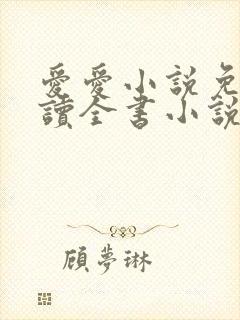 愛愛小説免
讀全書小說
顾夢琳